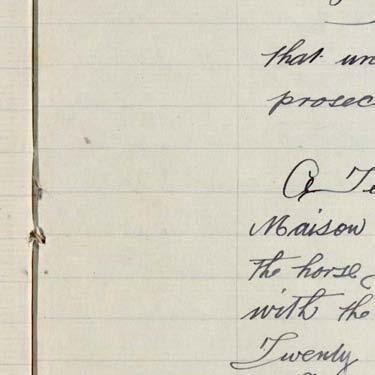 that un
prosec
A Te
Maison
the horse
with the
Twenty